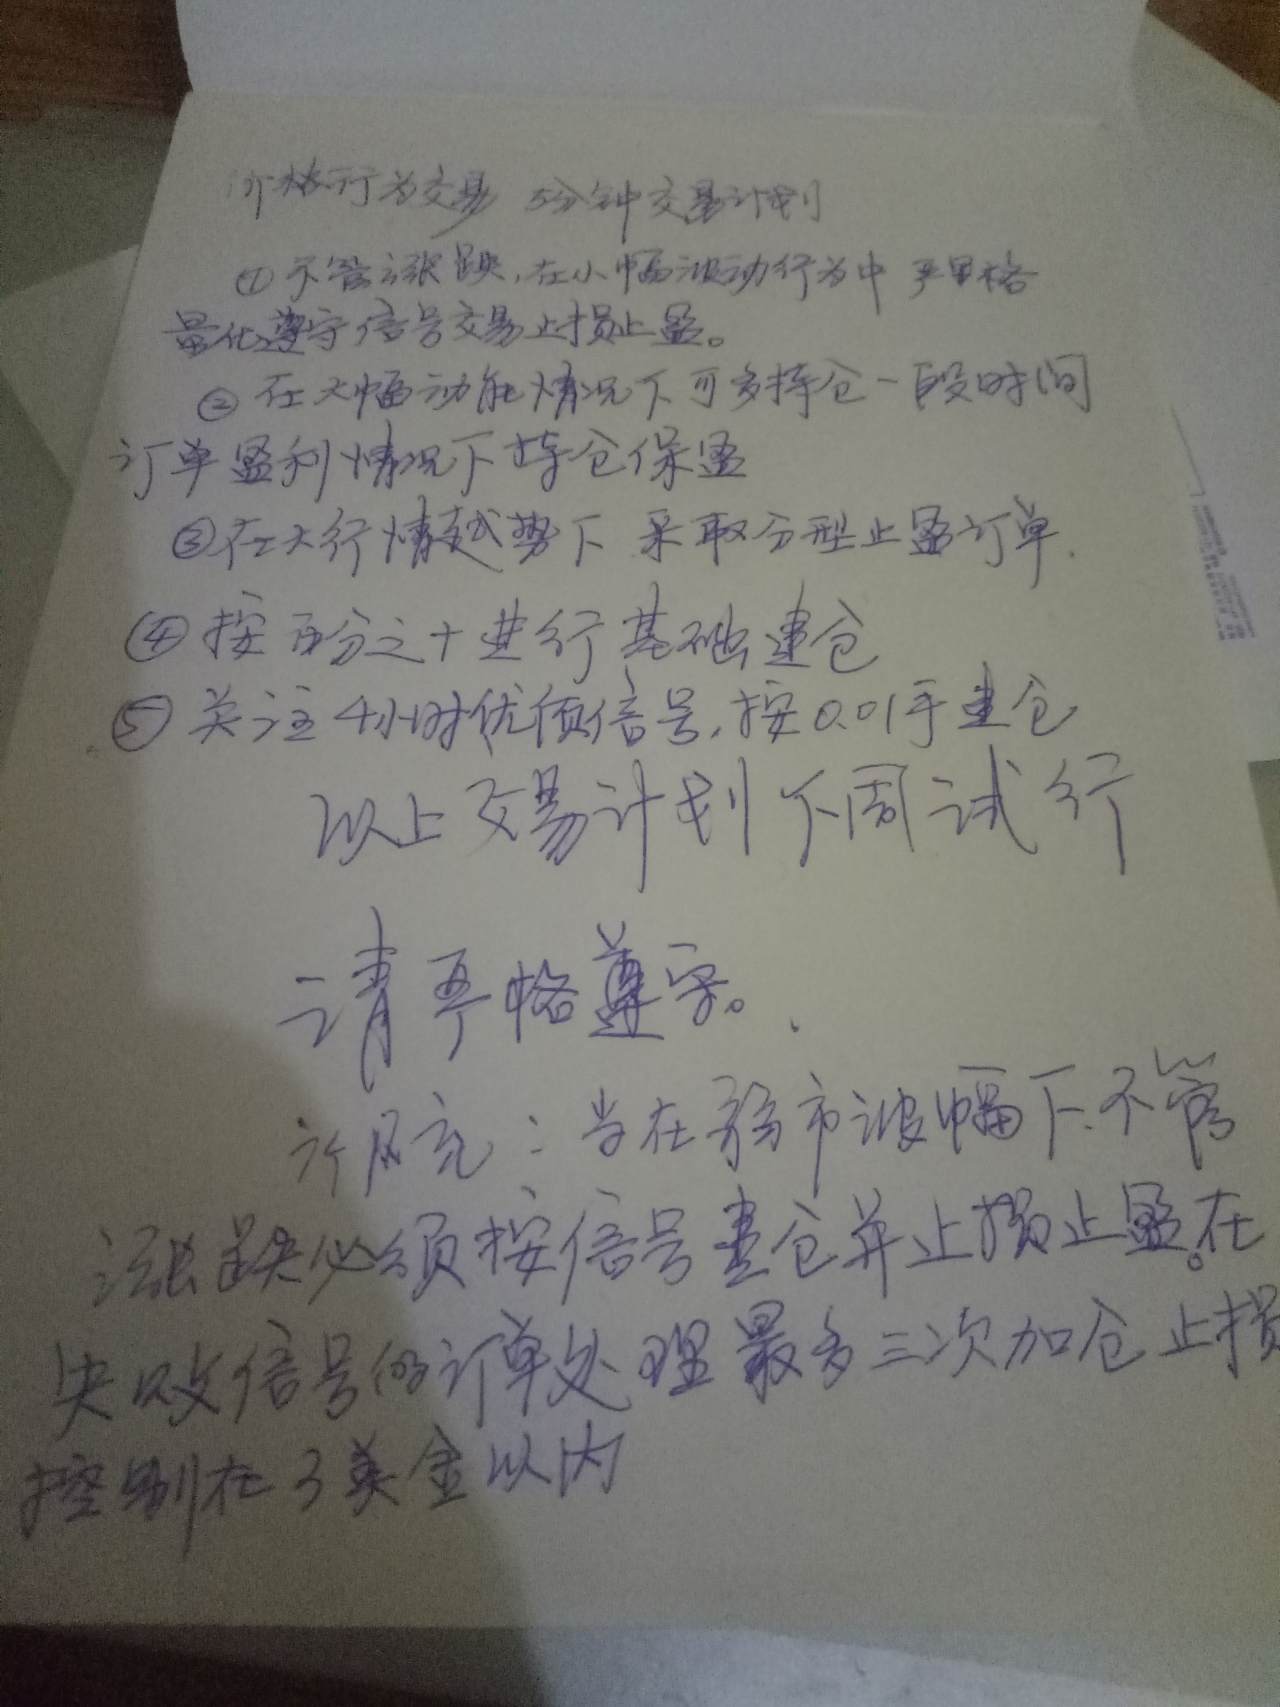 价格行为交易 5分钟交易计划
①不管涨跌,在小幅波动行为中 严格
量化遵守信号交易止损止盈。
②在大幅动能情况下可多持仓一段时间
订单盈利情况下持仓保盈
③在大行情趋势下 采取分型止盈订单.
④按百分之十进行基础建仓
⑤关注4小时优质信号,按0.01手建仓
以上交易计划下周试行
请严格遵守。
当在 市波幅下.不管
涨跌必须按信号建仓并止损止盈。在
失败信号的订单处理最多三次加仓 止损
控制在3美金以内